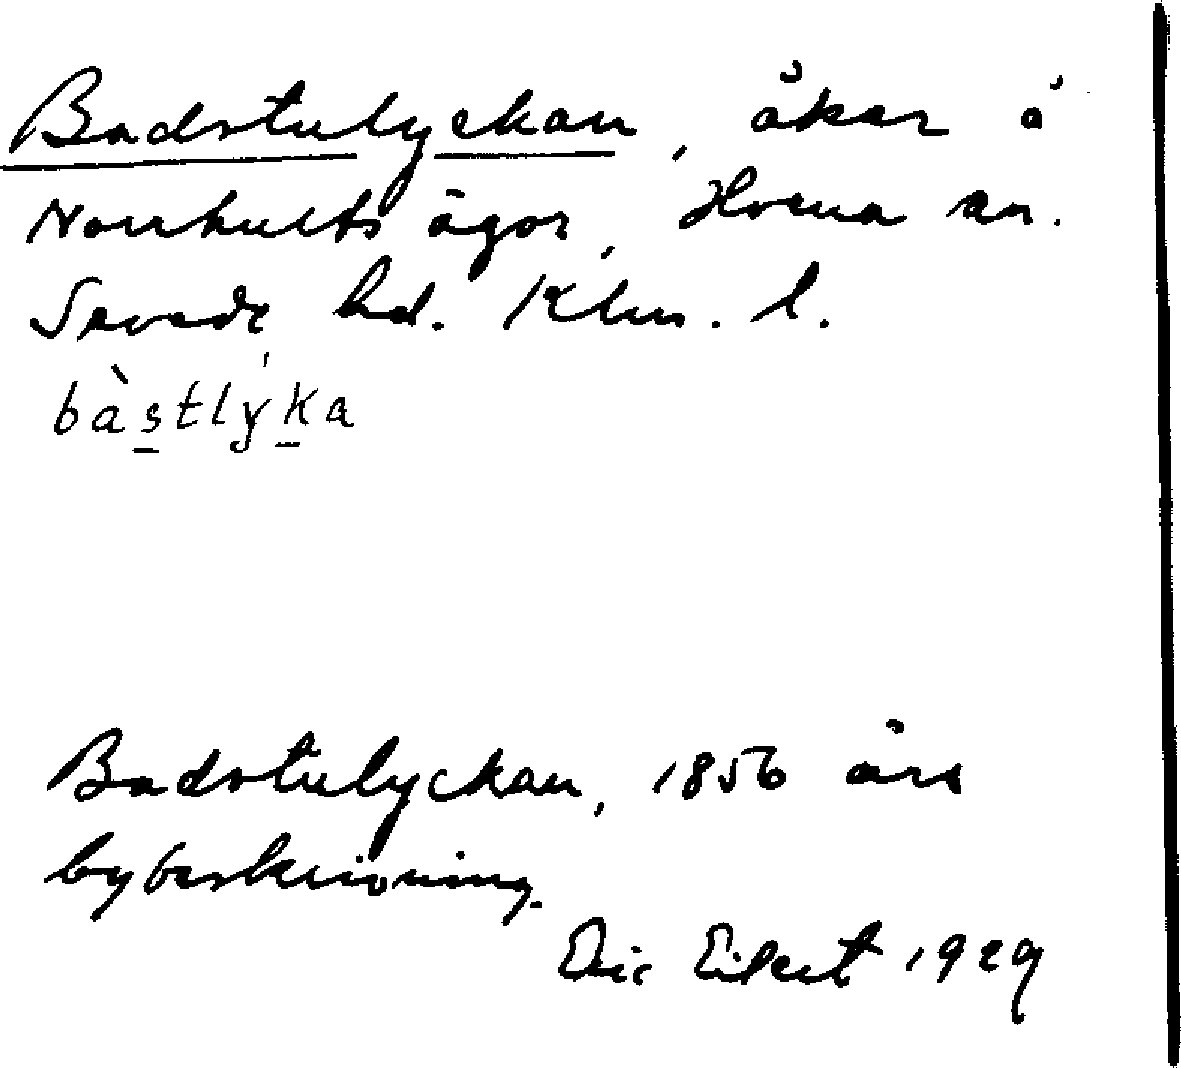 Badstulyckan, åker å
Norrhults ägor, Horna sn.
Sevede hd. Klm. l.
bàstlýka
Badstulyckan, 1856 års
bybeskrivning.
Eric Eilert 1929